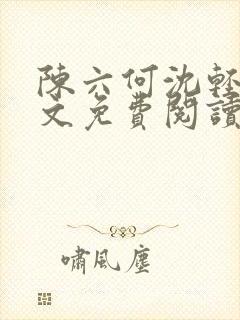 陳六何沈輕
文免費閱讀
嘯風塵